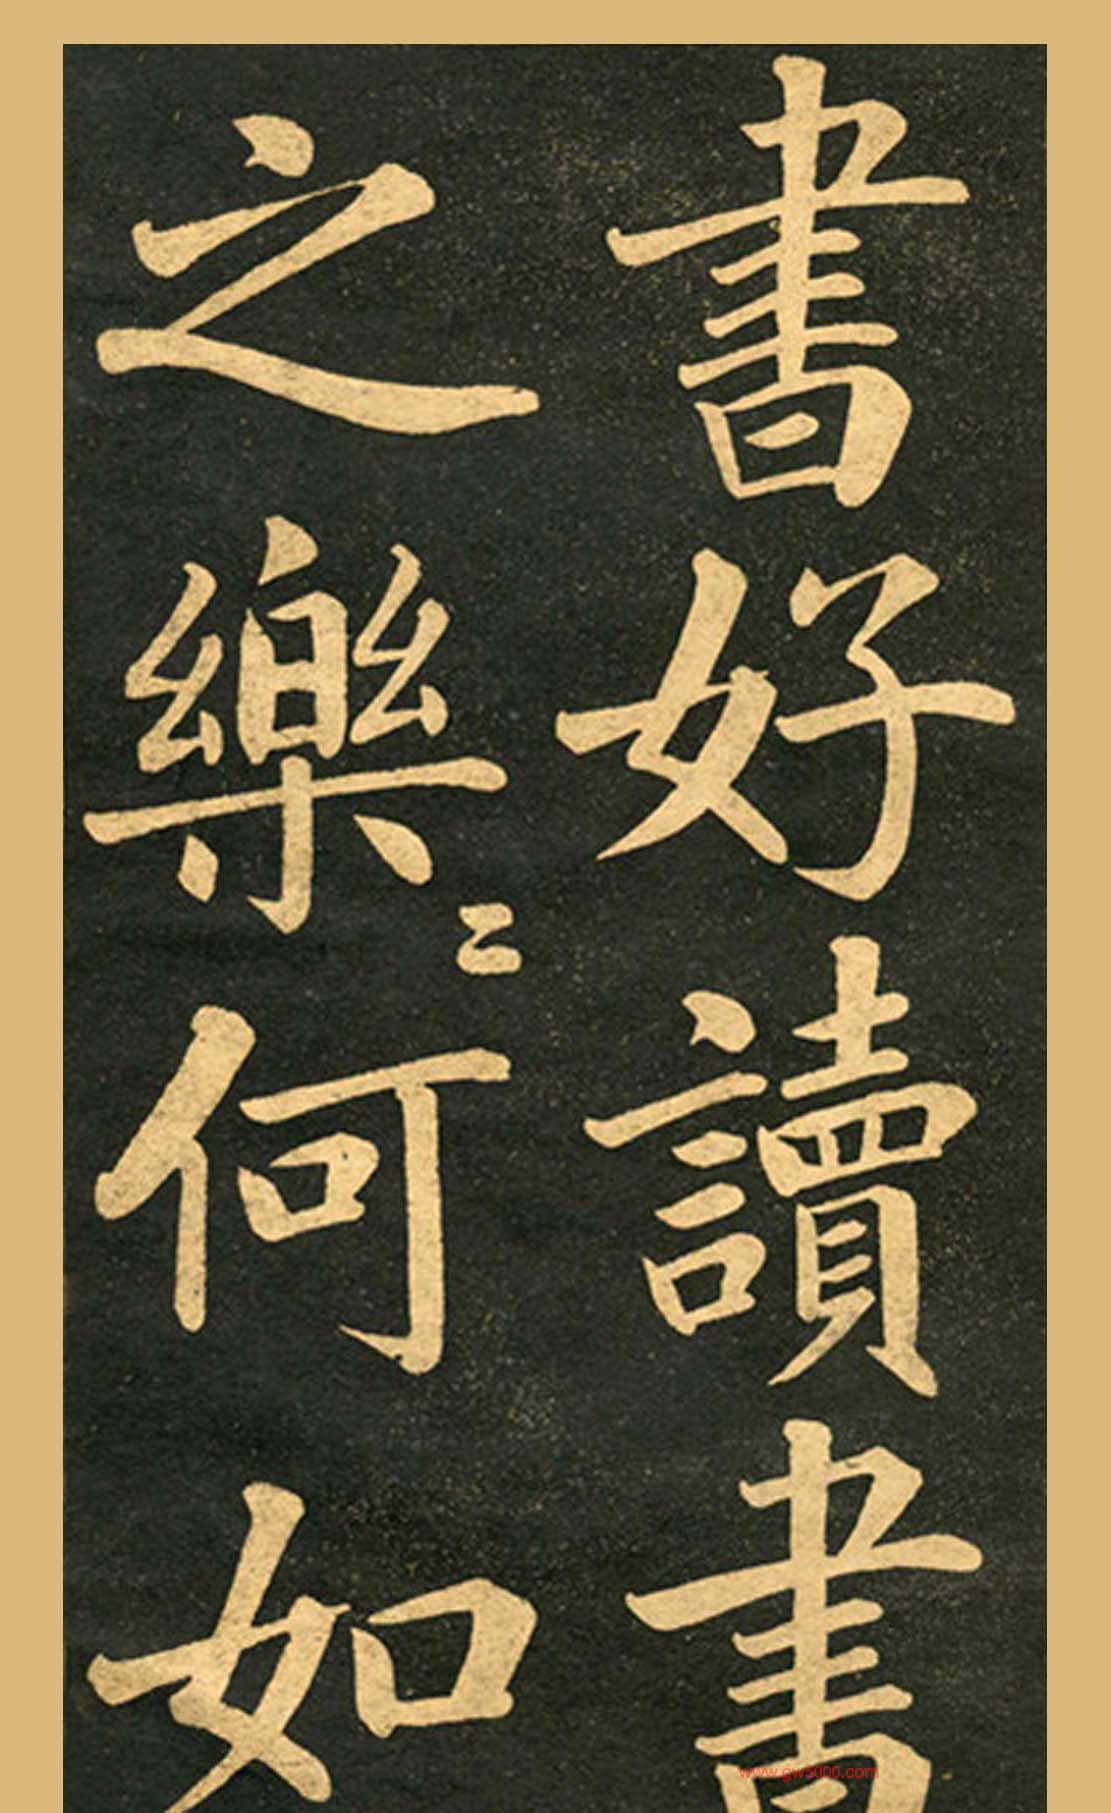 書好讀書
之樂〻何如
www.gw5000.com